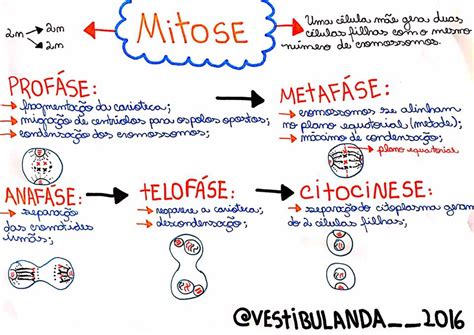 2n → 2n
→ 2n
MITOSE
Uma célula mãe gera duas
células filhas com o mesmo
número de cromossomos.
PROFÁSE:
→ fragmentação da carioteca;
→ migração de centríolos para os polos opostos;
→ condensação dos cromossomos;
METAFÁSE:
→ cromossomos se alinham
no plano equatorial (metade);
→ máximo de condensação;
→ plano equatorial
ANAFÁSE:
→ separação
das cromátides
irmãs;
TELOFÁSE:
→ reaparece a carioteca;
→ descondensação;
CITOCINESE:
→ separação do citoplasma geran
do 2 células filhas;
@VESTIBULANDA__2016